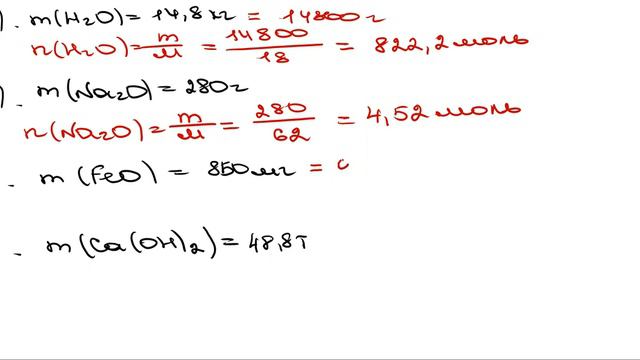 ). m(H₂O) = 14,8 кг = 14800 г
n(H₂O) = m/M = 14800/18 = 822,2 моль
). m(Na₂O) = 280 г
n(Na₂O) = m/M = 280/62 = 4,52 моль
. m(FeO) = 850 мг =
. m(Ca(OH)₂) = 48,8 т